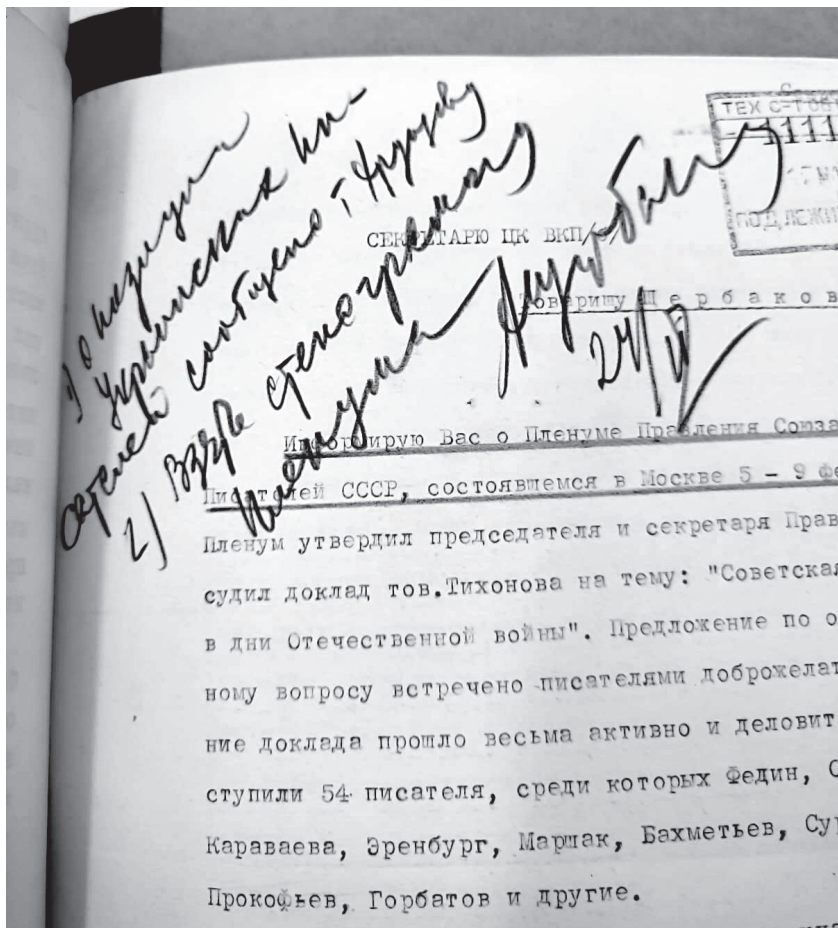 1) О позиции
Украинских пи-
сателей сообщено т
2) Взять стенограмму
Пленума
24/II
ТЕХ С-Т ОБ
1111
СЕКРЕТАРЮ ЦК ВКП/б/
Товарищу Щ е р б а к о в
Информирую Вас о Пленуме Правления Союза
Писателей СССР, состоявшемся в Москве 5 - 9 фе
Пленум утвердил председателя и секретаря Прав
судил доклад тов.Тихонова на тему: "Советская
в дни Отечественной войны". Предложение по о
ному вопросу встречено писателями доброжелат
ние доклада прошло весьма активно и деловит
ступили 54 писателя, среди которых Федин, С
Караваева, Эренбург, Маршак, Бахметьев, Сур
Прокофьев, Горбатов и другие.